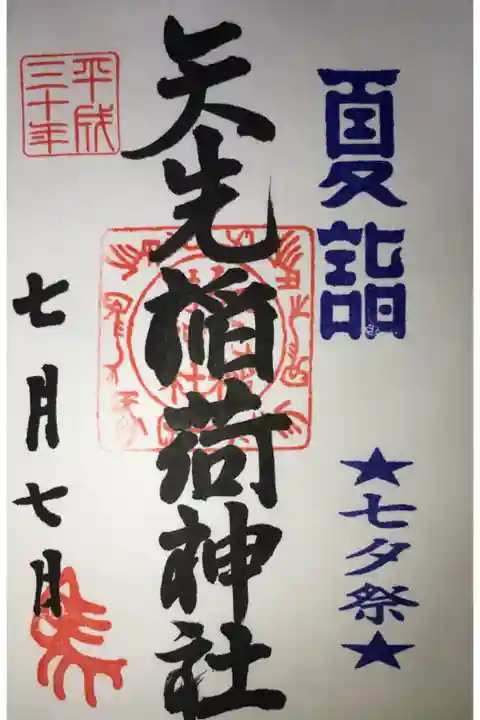 夏詣
★七夕祭★
矢先稲荷神社
平成
三十年
七月七月